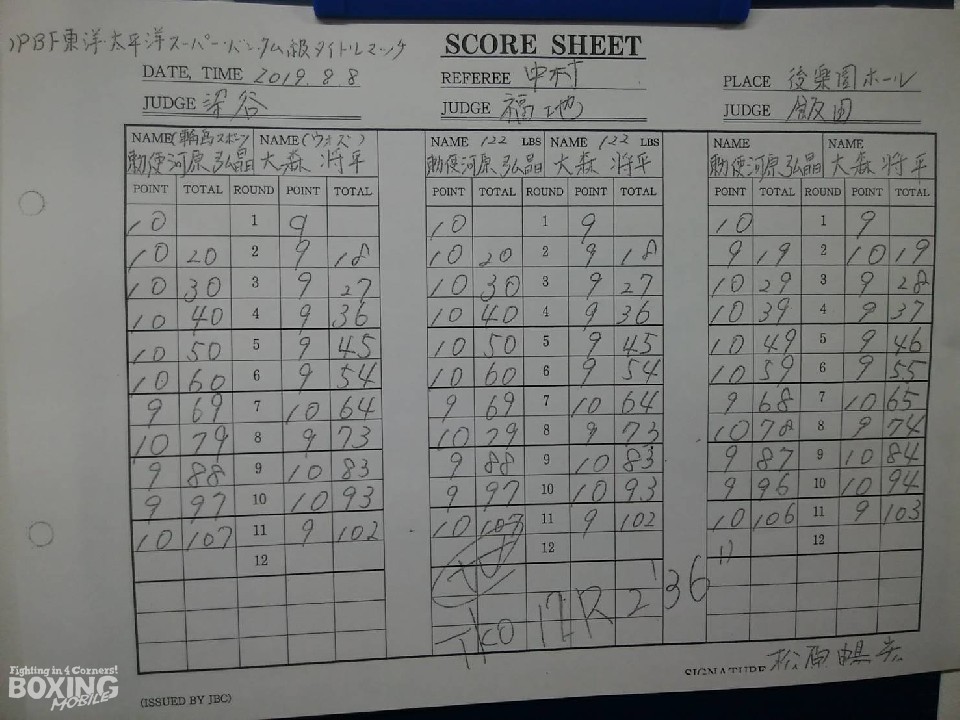 OPBF東洋太平洋スーパーバンタム級タイトルマッチ
SCORE SHEET
DATE, TIME 2019. 8. 8 REFEREE 中村 PLACE 後楽園ホール
JUDGE 深谷 JUDGE 福地 JUDGE 飯田
NAME (輪島スポーツ) NAME (ウォズ) NAME 122 LBS NAME 122 LBS NAME NAME
勅使河原弘晶 大森 将平 勅使河原弘晶 大森 将平 勅使河原弘晶 大森 将平
POINT TOTAL ROUND POINT TOTAL POINT TOTAL ROUND POINT TOTAL POINT TOTAL ROUND POINT TOTAL
10 1 9 10 1 9 10 1 9
10 20 2 9 18 10 20 2 9 18 9 19 2 10 19
10 30 3 9 27 10 30 3 9 27 10 29 3 9 28
10 40 4 9 36 10 40 4 9 36 10 39 4 9 37
10 50 5 9 45 10 50 5 9 45 10 49 5 9 46
10 60 6 9 54 10 60 6 9 54 10 59 6 9 55
9 69 7 10 64 9 69 7 10 64 9 68 7 10 65
10 79 8 9 73 10 79 8 9 73 10 78 8 9 74
9 88 9 10 83 9 88 9 10 83 9 87 9 10 84
9 97 10 10 93 9 97 10 10 93 9 96 10 10 94
10 107 11 9 102 10 107 11 9 102 10 106 11 9 103
12 12 12
TKO 12R 2'36"
SIGNATURE 松田
(ISSUED BY JBC)
Fighting in 4 Corners!
BOXING
MOBILE